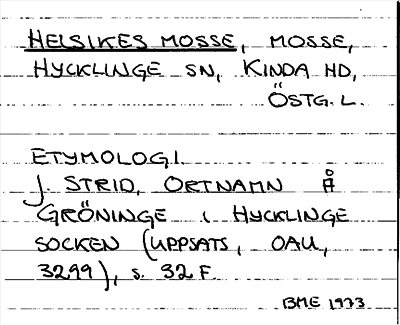 HELSIKES MOSSE, MOSSE,
HYCKLINGE SN, KINDA HD,
ÖSTG. L.
ETYMOLOGI.
J. STRID, ORTNAMN Å
GRÖNINGE I HYCKLINGE
SOCKEN (UPPSATS, OAU,
3299), S. 32 F.
BME 1973